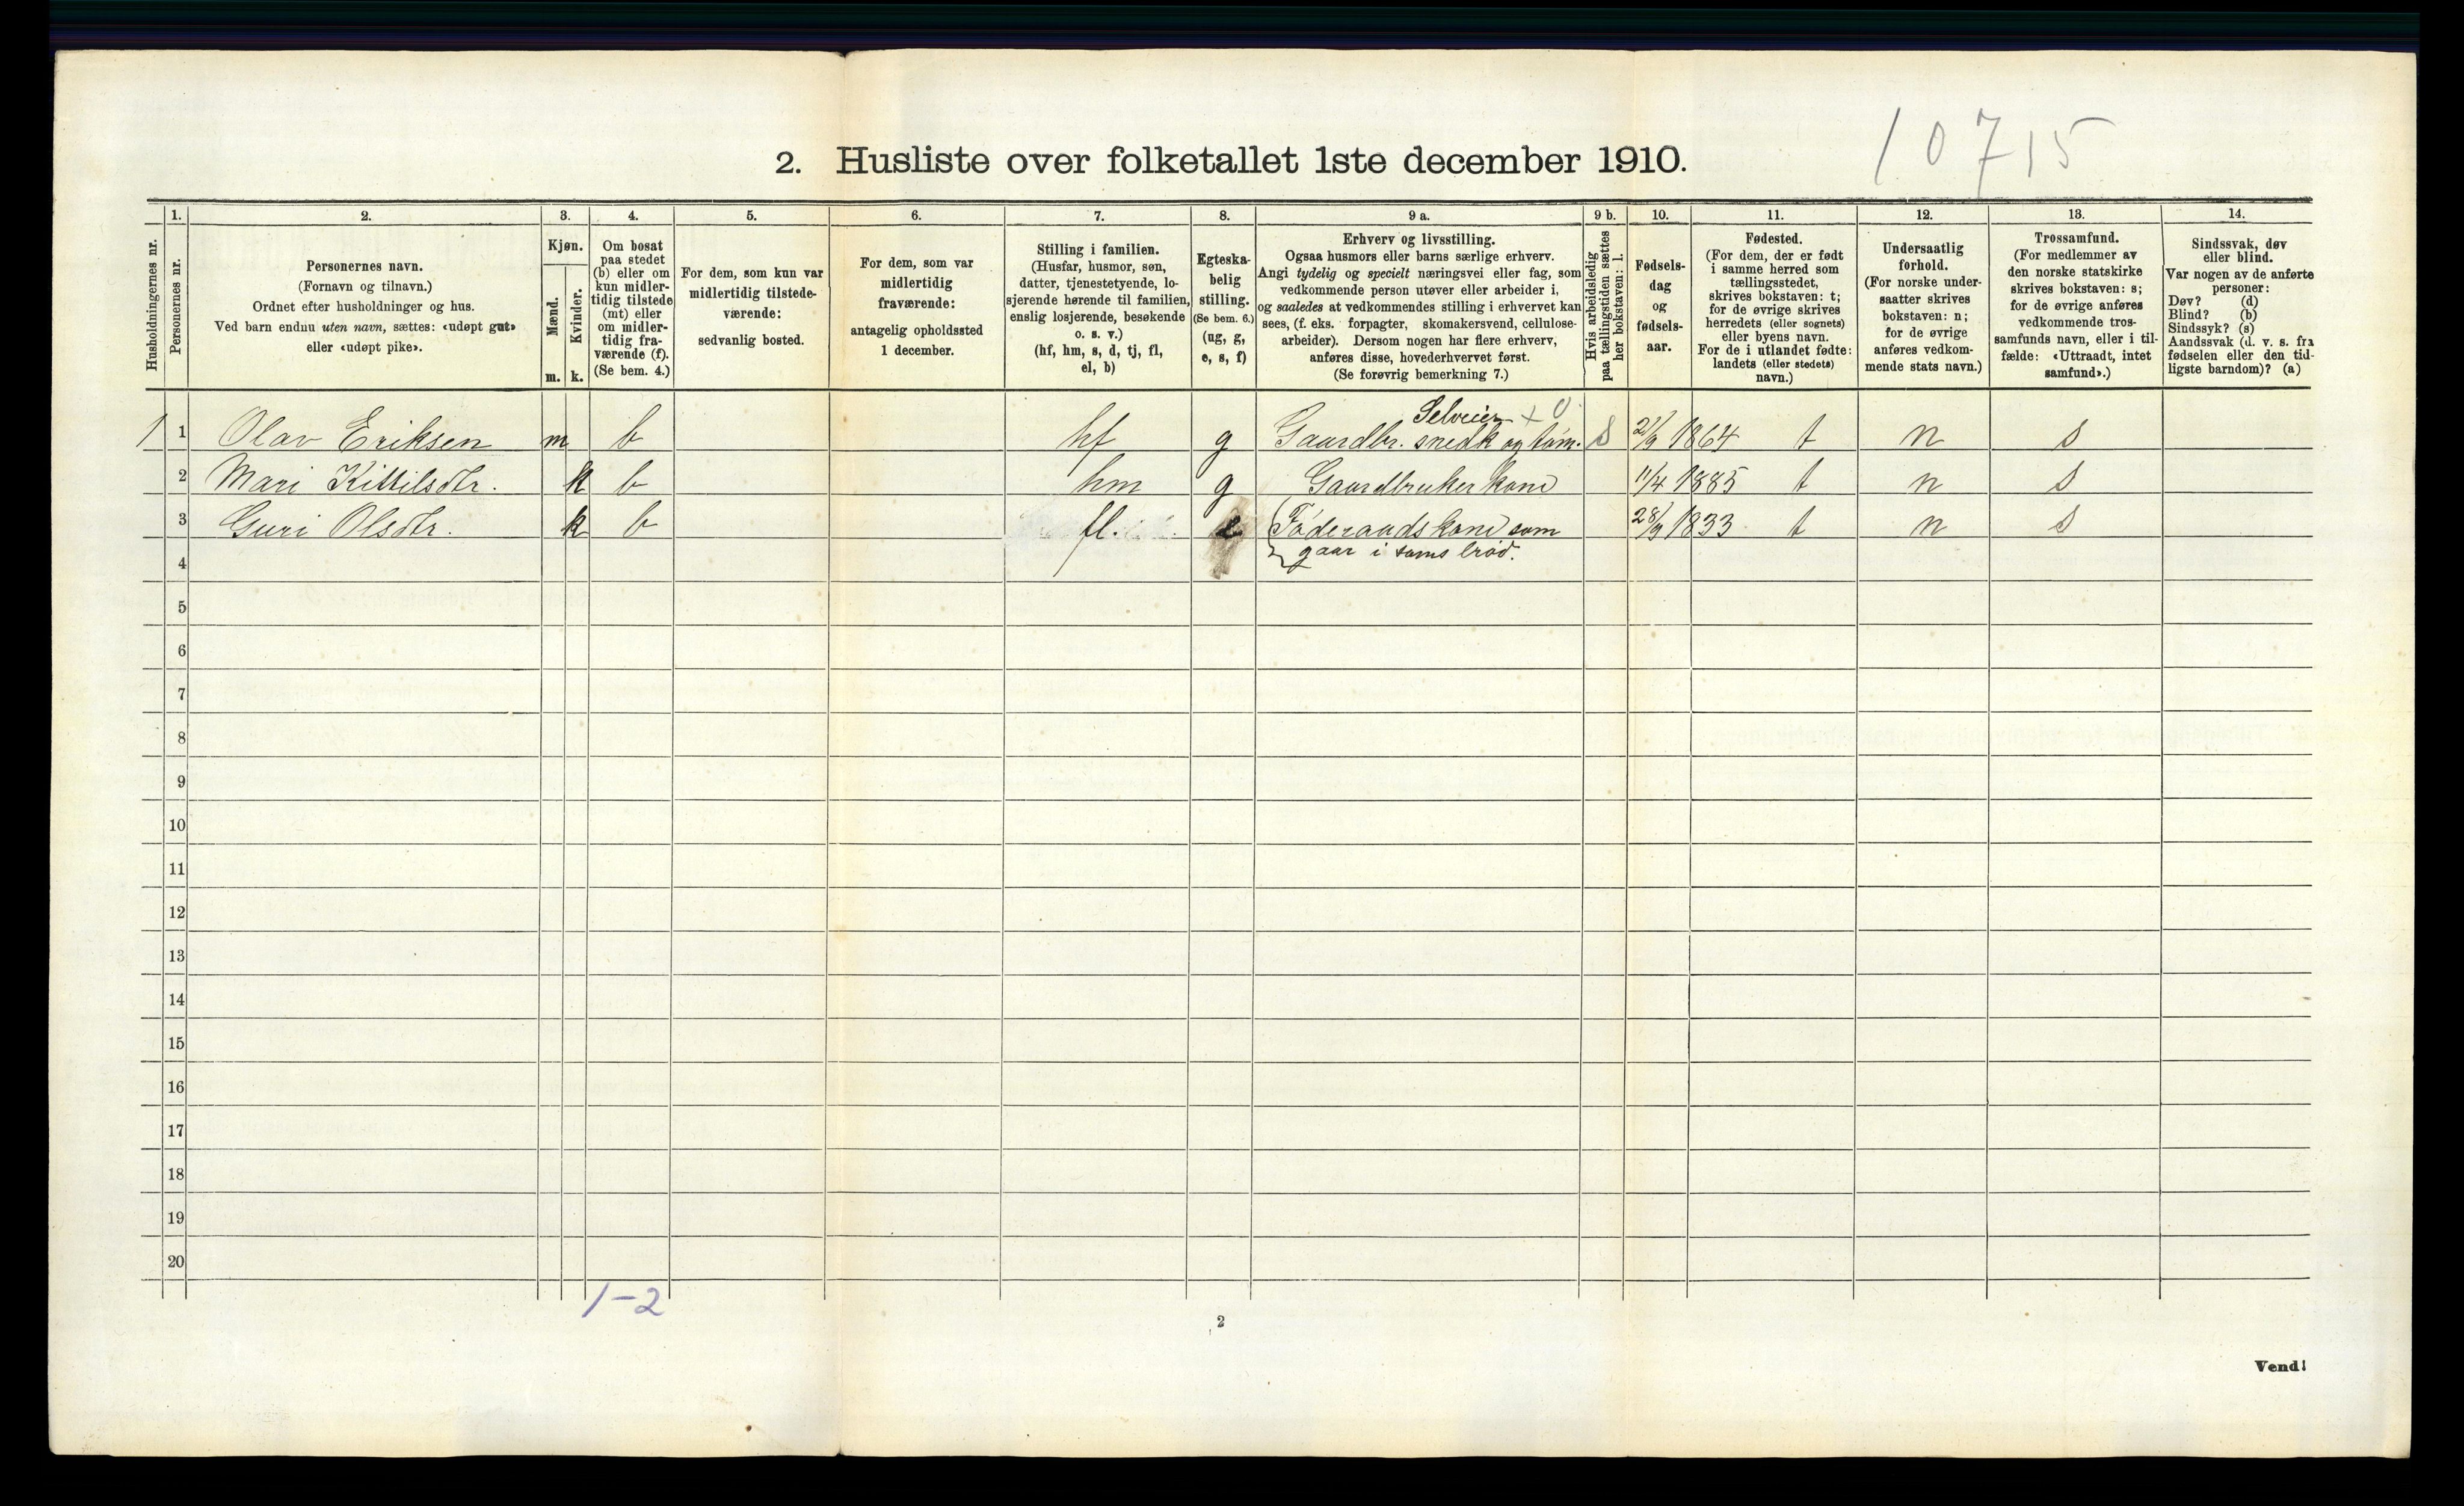 10715
2. Husliste over folketallet 1ste december 1910.
Husholdningernes nr.
1.
Personernes nr.
2.
Personernes navn.
(Fornavn og tilnavn.)
Ordnet efter husholdninger og hus.
Ved barn endnu uten navn, sættes: «udøpt gut»
eller «udøpt pike».
3.
Kjøn.
Mænd.
Kvinder.
m. k.
4.
Om bosat
paa stedet
(b) eller om
kun midler-
tidig tilstede
(mt) eller
om midler-
tidig fra-
værende (f).
(Se bem. 4.)
5.
For dem, som kun var
midlertidig tilstede-
værende:
sedvanlig bosted.
6.
For dem, som var
midlertidig
fraværende:
antagelig opholdssted
1 december.
7.
Stilling i familien.
(Husfar, husmor, søn,
datter, tjenestetyende, lo-
sjerende hørende til familien,
enslig losjerende, besøkende
o. s. v.)
(hf, hm, s, d, tj, fl,
el, b)
8.
Egteska-
belig
stilling.
(Se bem. 6.)
(ug, g,
e, s, f)
9 a.
Erhverv og livsstilling.
Ogsaa husmors eller barns særlige erhverv.
Angi tydelig og specielt næringsvei eller fag, som
vedkommende person utøver eller arbeider i,
og saaledes at vedkommendes stilling i erhvervet kan
sees, (f. eks. forpagter, skomakersvend, cellulose-
arbeider). Dersom nogen har flere erhverv,
anføres disse, hovederhvervet først.
(Se forøvrig bemerkning 7.)
9 b.
Hvis arbeidsledig
paa tællingstiden sættes
her bokstaven: l.
10.
Fødsels-
dag
og
fødsels-
aar.
11.
Fødested.
(For dem, der er født
i samme herred som
tællingsstedet,
skrives bokstaven: t;
for de øvrige skrives
herredets (eller sognets)
eller byens navn.
For de i utlandet fødte:
landets (eller stedets)
navn.)
12.
Undersaatlig
forhold.
(For norske under-
saatter skrives
bokstaven: n;
for de øvrige
anføres vedkom-
mende stats navn.)
13.
Trossamfund.
(For medlemmer av
den norske statskirke
skrives bokstaven: s;
for de øvrige anføres
vedkommende tros-
samfunds navn, eller i til-
fælde: «Uttraadt, intet
samfund».)
14.
Sindssvak, døv
eller blind.
Var nogen av de anførte
personer:
Døv? (d)
Blind? (b)
Sindssyk? (s)
Aandssvak (d. v. s. fra
fødselen eller den tid-
ligste barndom)? (a)
Selveier x 0
1 1 Olav Eriksen m b hf g Gaardbr. snedk og tøm. s 1864 t n s
2 Mari Kittilsdtr. k b hm g Gaardbruker kone 11/4 1885 t n s
3 Guri Olsdtr. k b fl. e Føderaads kone som 28/9 1833 t n s
gaar i sams brød.
4
5
6
7
8
9
10
11
12
13
14
15
16
17
18
19
20
1-2
2
Vend!